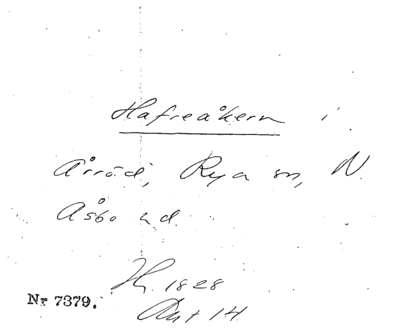 Hafreåkern i
Årröd, Rya sn, N.
Åsbo hd.
H. 1828
Akt 14
Nr 7379.